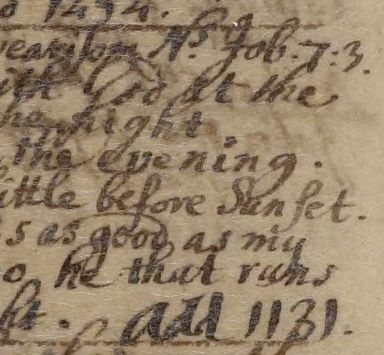 o 1494.
wearisom Ns. Job. 7: 3.
with God at the
the night
the evening.
little before Sunset.
s as good as my
o he that runs
ht. Add 1131.